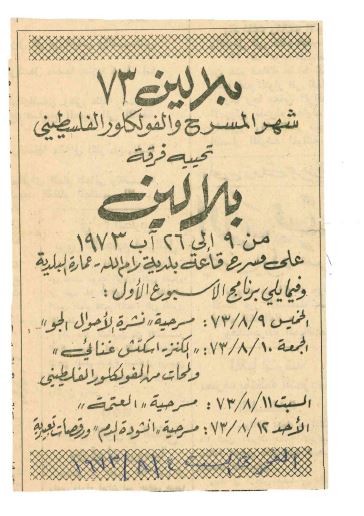 بلالين ٧٣
شهر المسرح والفولكلور الفلسطيني
تحييه فرقة
بلالين
من ٩ الى ٢٦ آب ١٩٧٣
على مسرح قاعة بلدية رام الله - عمارة البلدية
وفيما يلي برنامج الأسبوع الأول :
الخميس ٧٣/٨/٩ : مسرحية "نشرة الأحوال الجو"
الجمعة ٧٣/٨/١٠ : "الكنز" اسكتش غنائي
ولمحات من الفولكلور الفلسطيني
السبت ٧٣/٨/١١ : مسرحية "العتمة"
الأحد ٧٣/٨/١٢ : مسرحية "انشودة الدم" ورقصات تعبيرية
السبت ٤ /٨/ ١٩٧٣